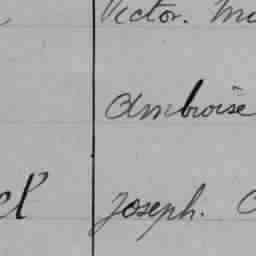 Victor.
Ambroise
Joseph.